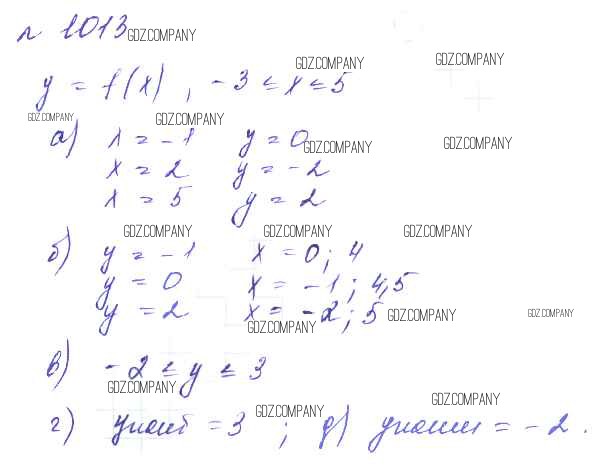 № 1013 GDZ.COMPANY
GDZ.COMPANY GDZ.COMPANY
y = f(x), -3 ≤ x ≤ 5
GDZ.COMPANY GDZ.COMPANY
а) x = -1 y = 0 GDZ.COMPANY GDZ.COMPANY
x = 2 y = -2
x = 5 y = 2
GDZ.COMPANY GDZ.COMPANY GDZ.COMPANY
б) y = -1 x = 0; 4
y = 0 x = -1; 4,5
y = 2 x = -2; 5 GDZ.COMPANY GDZ.COMPANY
GDZ.COMPANY
в) -2 ≤ y ≤ 3
GDZ.COMPANY
GDZ.COMPANY GDZ.COMPANY
г) yнаиб = 3 ; д) yнаим = -2.